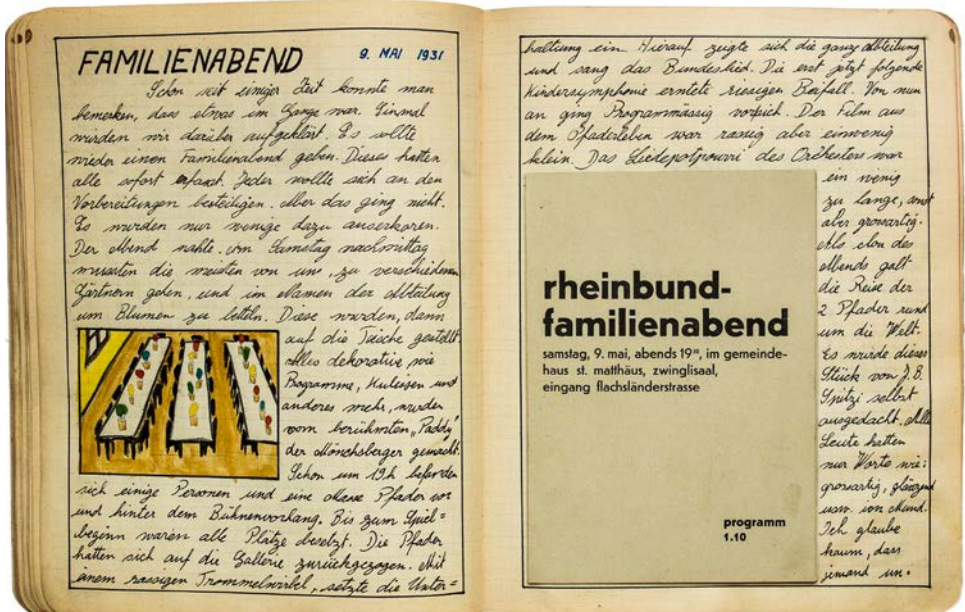 FAMILIENABEND
9. MAI 1931
Schon seit einiger Zeit konnte man
bemerken, dass etwas im Gange war. Einmal
würden wir darüber aufgeklärt. Es sollte
wieder einen Familienabend geben. Dieses hatten
alle sofort erfasst. Jeder wollte sich an den
Vorbereitungen beteiligen. Aber das ging nicht.
Es wurden nur wenige dazu auserkoren.
Der Abend nahte. Am Samstag nachmittag
mussten die meisten von uns, zu verschiedenen
Gärtnern gehen, und im Namen der Abteilung
um Blumen zu betteln. Diese wurden, dann
auf die Tische gestellt.
Alles dekorative wie
Programme, Kulissen und
anderes mehr, wurden
vom berühmten "Paddy"
der Mönchsberger gemacht.
Schon um 19h befanden
sich einige Personen und eine Masse Pfader vor
und hinter dem Bühnenvorhang. Bis zum Spiel=
beginn waren alle Plätze besetzt. Die Pfader
hatten sich auf die Gallerie zurückgezogen. Mit
einem rassigen Trommelwirbel, setzte die Unter=
haltung ein. Hierauf zeigte sich die ganze Abteilung
und sang das Bundeslied. Die erst jetzt folgende
Kindersymphonie erntete riesigen Beifall. Von nun
an ging Programmässig vorsich. Der Film aus
dem Pfaderleben war rassig aber einwenig
klein. Das Liedepotpourri des Orchesters war
ein wenig
zu lange, sonst
aber grossartig.
Als clou des
Abends galt
die Reise der
2 Pfader rund
um die Welt.
Es wurde dieses
Stück von J.B.
Spitzi selbst
ausgedacht. Alle
Leute hatten
nur Worte wie:
grossartig, glänzend
usw. im Mund.
Ich glaube
kaum, dass
jemand un-
rheinbund-
familienabend
samstag, 9. mai, abends 19³⁰, im gemeinde-
haus st. matthäus, zwinglisaal,
eingang flachsländerstrasse
programm
1.10